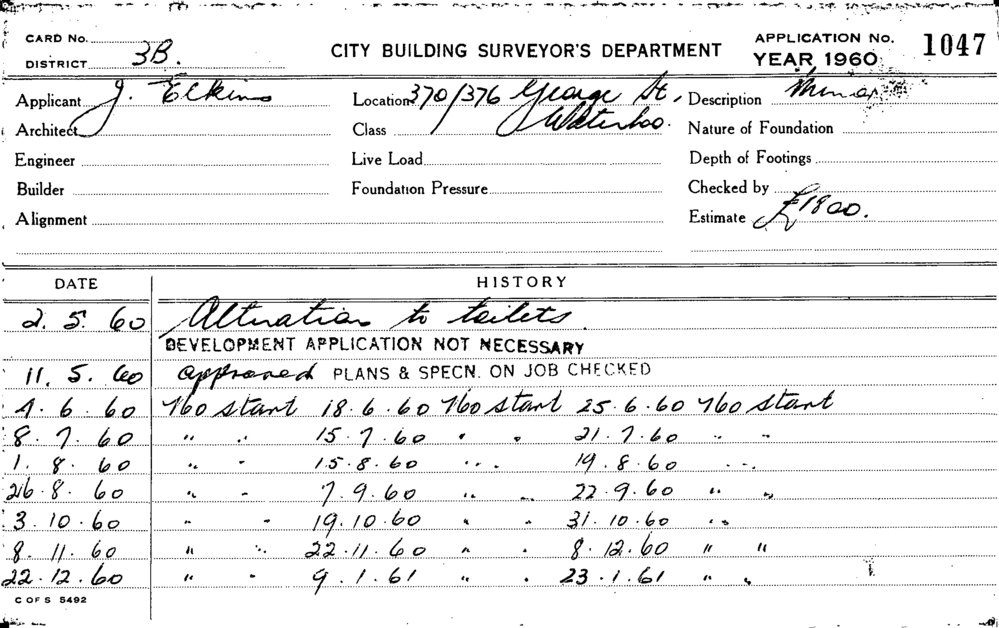 CARD No. CITY BUILDING SURVEYOR'S DEPARTMENT APPLICATION No. 1047
DISTRICT 3B. YEAR 1960
Applicant J. Elkins Location 370/376 George St., Description
Architect Class Waterloo. Nature of Foundation
Engineer Live Load Depth of Footings
Builder Foundation Pressure Checked by
Alignment Estimate £1800.
DATE HISTORY
2. 5. 60 Alteration to toilets.
DEVELOPMENT APPLICATION NOT NECESSARY
11. 5. 60 approved PLANS & SPECN. ON JOB CHECKED
6. 60 start 18. 6. 60 start 25. 6. 60 start
8. 7. 60 " " 15. 7. 60 " " 21. 7. 60 " "
1. 8. 60 " " 15. 8. 60 " " 19. 8. 60 " "
26. 8. 60 " " 7. 9. 60 " " 22. 9. 60 " "
3. 10. 60 " " 19. 10. 60 " " 31. 10. 60 " "
8. 11. 60 " " 22. 11. 60 " " 8. 12. 60 " "
22. 12. 60 " " 9. 1. 61 " " 23. 1. 61 " "
C OF S 5492